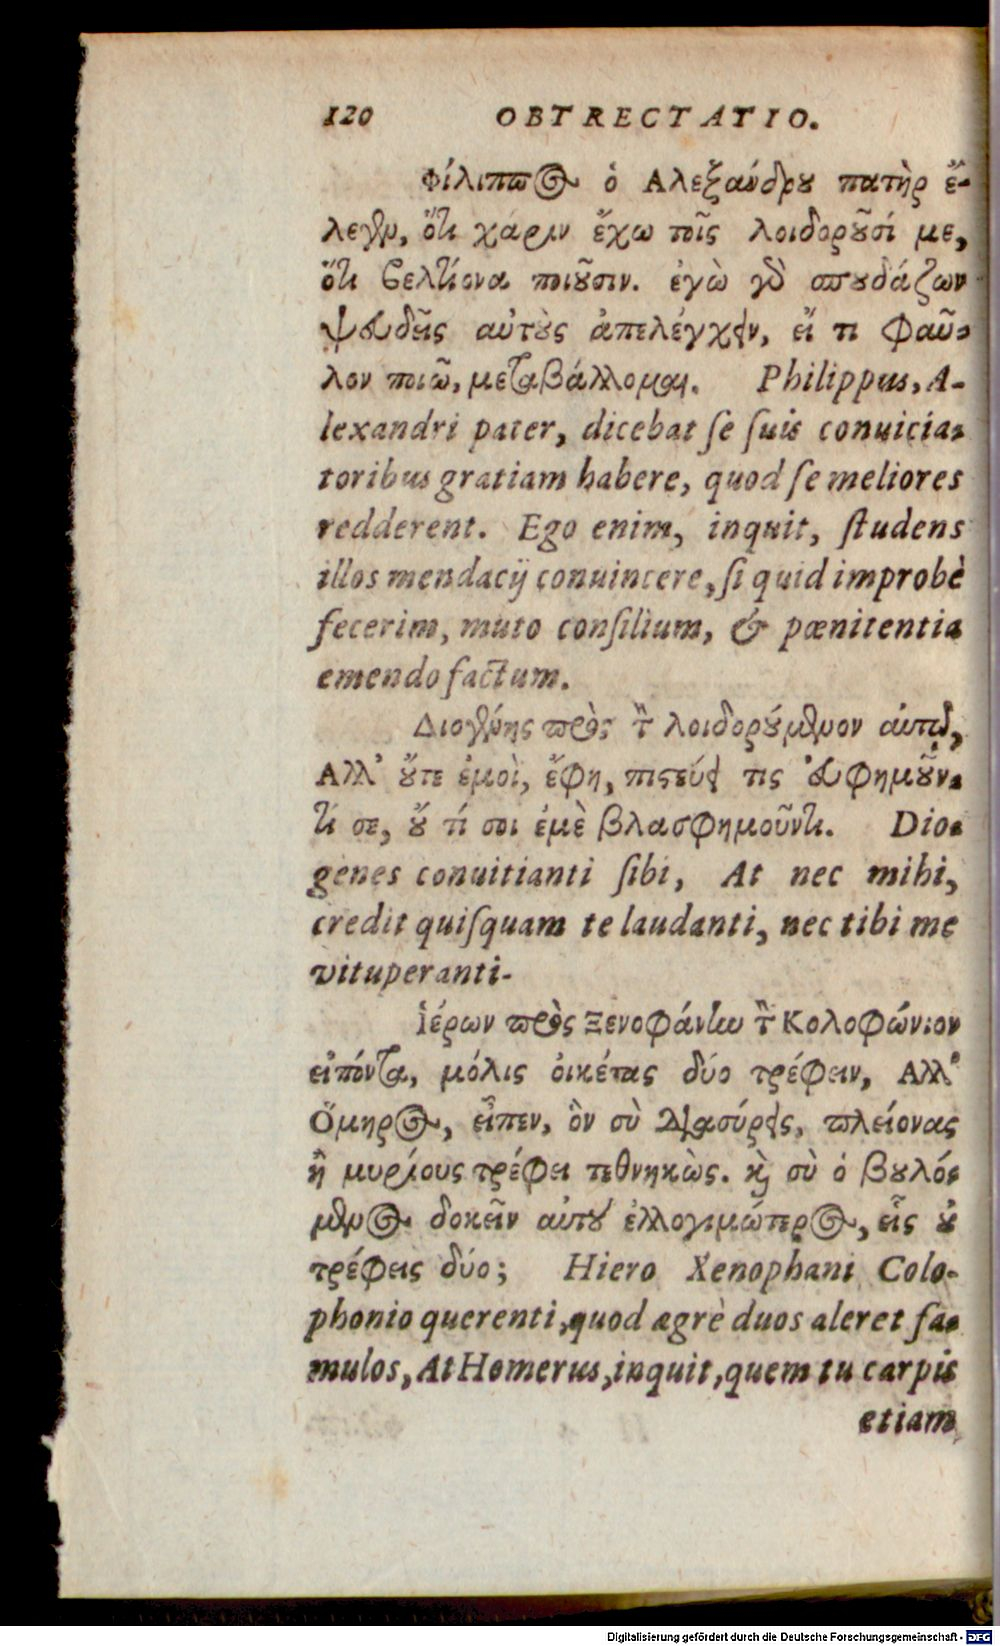 120 OBTRECTATIO.
Φίλιππος ὁ Αλεξάνδρου πατὴρ ἔ-
λεγεν, ὅτι χάριν ἔχω τοῖς λοιδοροῦσί με,
ὅτι βελτίονα ποιοῦσιν. ἐγὼ γὸ σπουδάζων
ψευδεῖς αὐτοὺς ἀπελέγχειν, εἴ τι φαῦ-
λον ποιῶ, μεταβάλλομαι. Philippus, A-
lexandri pater, dicebat ſe ſuis conuicia-
toribus gratiam habere, quod ſe meliores
redderent. Ego enim, inquit, ſtudens
illos mendacij conuincere, ſi quid improbè
fecerim, muto conſilium, & pœnitentia
emendo factum.
Διογένης πρὸς τὸν λοιδορούμενον αὐτῷ,
Αλλ' οὔτε ἐμοὶ, ἔφη, πιστεύει τις εὐφημοῦν-
τί σε, οὔ τί σοι ἐμὲ βλασφημοῦντι. Dio-
genes conuitianti ſibi, At nec mihi,
credit quiſquam te laudanti, nec tibi me
vituperanti-
Ἱέρων πρὸς Ξενοφάνην τὸν Κολοφώνιον
εἰπόντα, μόλις οἰκέτας δύο τρέφειν, Αλλ'
Ὅμηρος, εἶπεν, ὃν σὺ διασύρεις, πλείονας
ἢ μυρίους τρέφει τεθνηκὼς. καὶ σὺ ὁ βουλό-
μενος δοκεῖν αὐτοῦ ἐλλογιμώτερος, εἷς οὐ
τρέφεις δύο; Hiero Xenophani Colo-
phonio querenti, quod ægrè duos aleret fa-
mulos, At Homerus, inquit, quem tu carpis
etiam
Digitalisierung gefördert durch die Deutsche Forschungsgemeinschaft - DFG